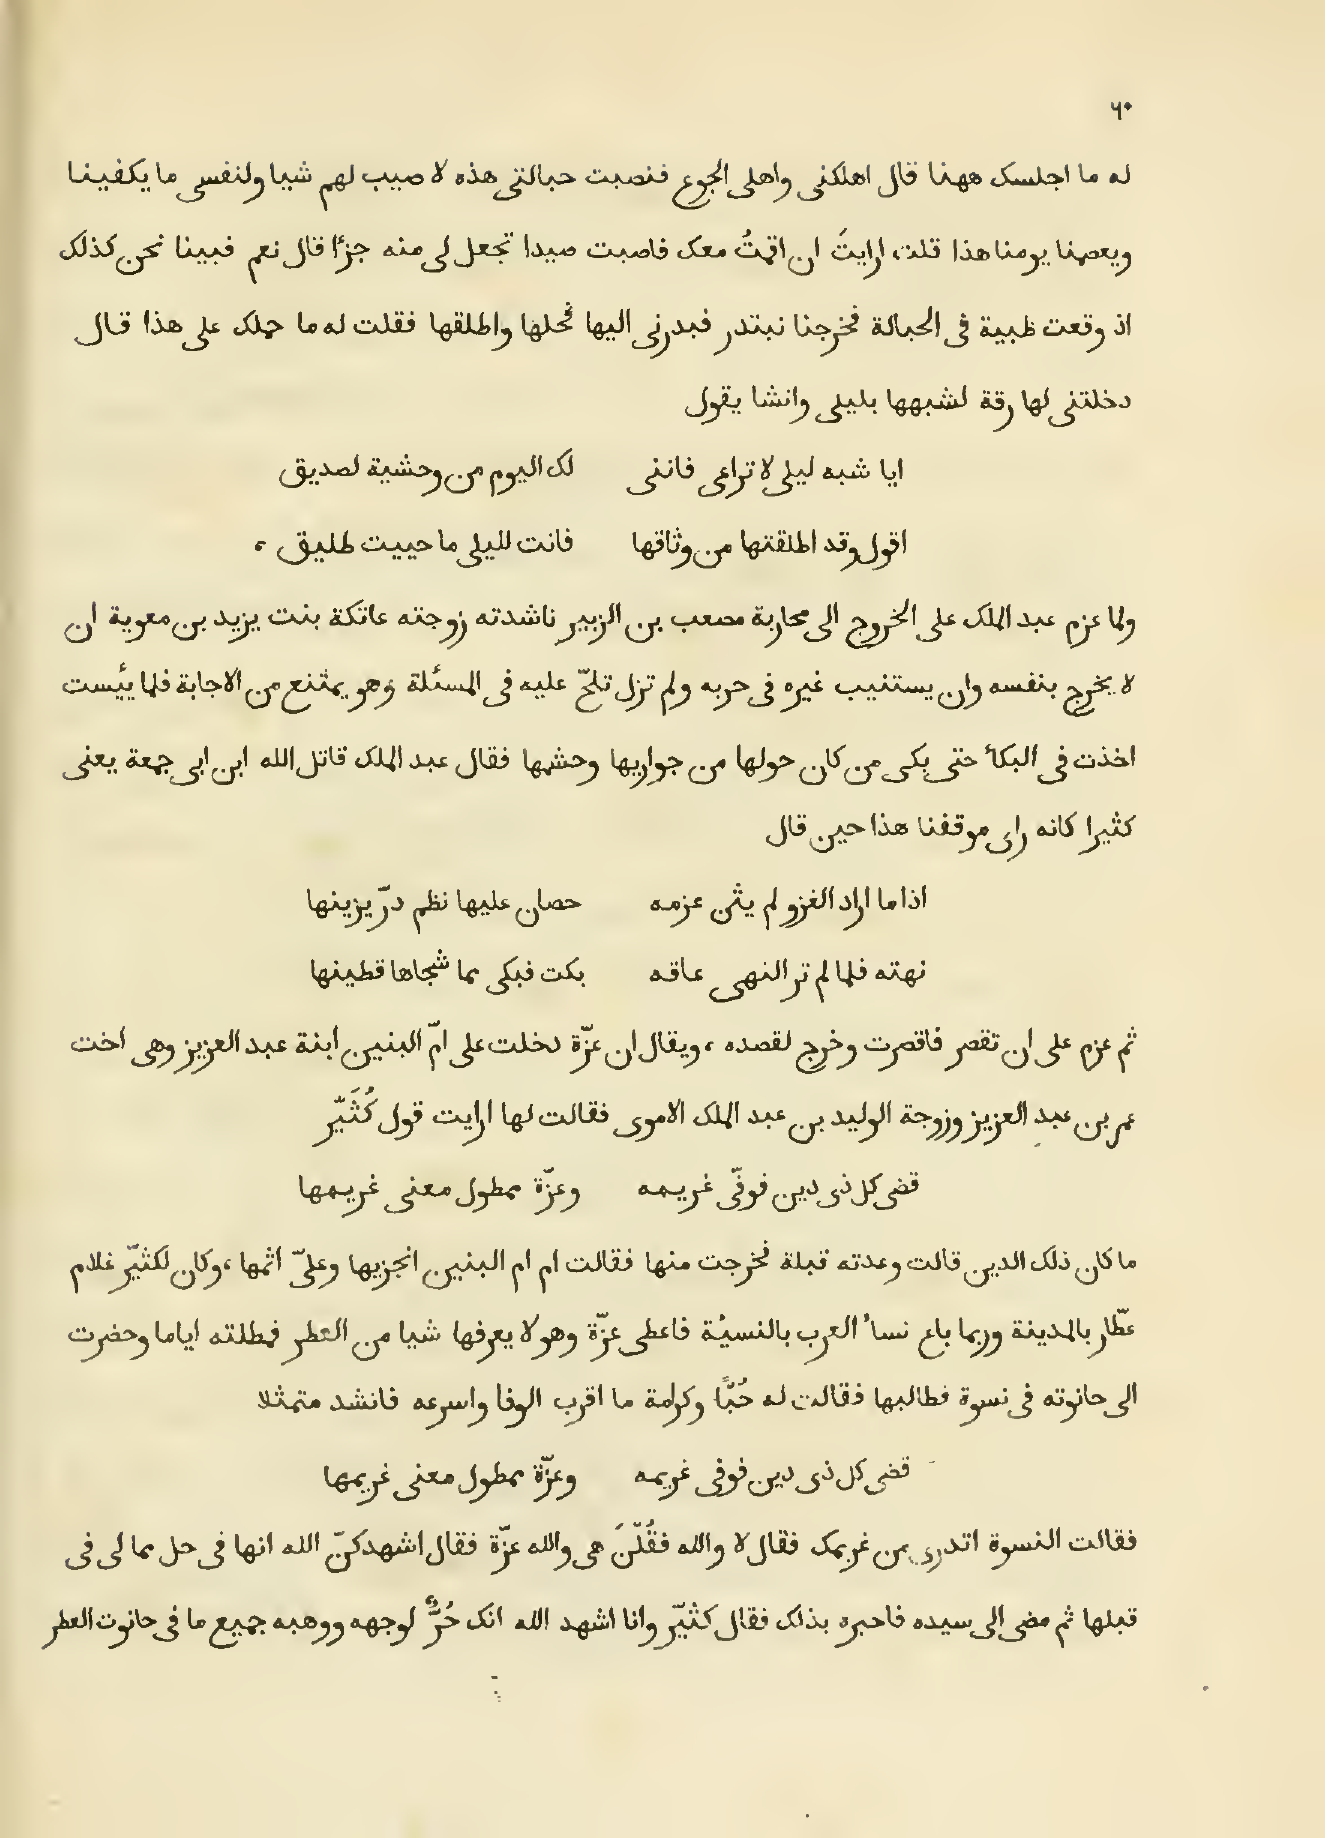 ٦٠
له ما اجلسك ههنا قال اهلكنى واهلى الجوع فنصبت حبالتى هذه لاصيب لهم شيا ولنفسى ما يكفينا
ويعصمنا يومنا هذا قلت، ارايتَ ان اقمتُ معك فاصبت صيدا تجعل لى منه جزءًا قال نعم فبينا نحن كذلك
اذ وقعت ظبية فى الحبالة فخرجنا نبتدر فبدرنى اليها فحلها واطلقها فقلت له ما حملك على هذا قال
دخلتنى لها رقة لشبهها بليلى وانشا يقول
ايا شبه ليلى لا تراعى فاننى لك اليوم من وحشية لصديق
اقول وقد اطلقتها من وثاقها فانت لليلى ما حييت طليق ،
ولما عزم عبد الملك على الخروج الى محاربة مصعب بن الزبير ناشدته زوجته عاتكة بنت يزيد بن معوية ان
لا يخرج بنفسه وان يستنيب غيره فى حربه ولم تزل تلحّ عليه فى المسئلة وهو يمتنع من الاجابة فلما يئست
اخذت فى البكاء حتى بكى من كان حولها من جواريها وحشمها فقال عبد الملك قاتل الله ابن ابى جمعة يعنى
كثيرا كانه راى موقفنا هذا حين قال
اذا ما اراد الغزو لم يثن عزمه حصان عليها نظم درّ يزينها
نهته فلما لم تر النهى عاقه بكت فبكى مما شجاها قطينها
ثم عزم على ان تقصر فاقصرت وخرج لقصده ، ويقال ان عزّة دخلت على امّ البنين ابنة عبد العزيز وهى اخت
عمر بن عبد العزيز وزوجة الوليد بن عبد الملك الاموى فقالت لها ارايت قول كُثَيّر
قضى كل ذى دين فوفّى غريمه وعزّة ممطول معنى غريمها
ما كان ذلك الدين قالت وعدته قبلة فخرجت منها فقالت ام ام البنين انجزيها وعلىّ اثمها ، وكان لكثيّر غلام
عطّار بالمدينة وربما باع نساء العرب بالنسيئة فاعطى عزّة وهو لا يعرفها شيا من العطر فمطلته اياما وحضرت
الى حانوته فى نسوة فطالبها فقالت له حُبًّا وكرامة ما اقرب الوفا واسرعه فانشد متمثلا
قضى كل ذى دين فوفى غريمه وعزّة ممطول معنى غريمها
فقالت النسوة اتدرى من غريمك فقال لا والله فقُلْنَ هى والله عزّة فقال اشهدكنّ الله انها فى حل مما لى فى
قبلها ثم مضى الى سيده فاخبره بذلك فقال كثيّر وانا اشهد الله انك حُرٌّ لوجهه ووهبه جميع ما فى حانوت العطر